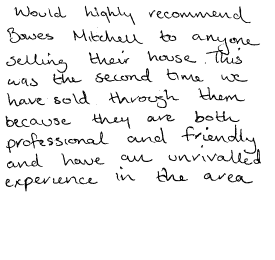 Would highly recommend
Bowes Mitchell to anyone
selling their house. This
was the second time we
have sold through them
because they are both
professional and friendly
and have an unrivalled
experience in the area